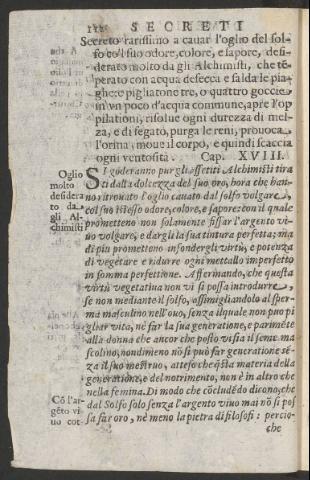 SECRETI
Secreto rarissimo a cauar l'oglio del sol-
fo col suo odore, colore, e sapore, desi-
derato molto da gli Alchimisti, che tē-
perato con acqua desecca e salda le pia-
ghe: e pigliatone tre, o quattro goccie
in vn poco d'acqua commune, apre l'op
pilationi, risolue ogni durezza di mel-
za, e di fegato, purga le reni, prouoca
l'orina, moue il corpo, e quindi scaccia
ogni ventosità. Cap. XVIII.
Oglio
molto
desidera
to da
gli Al-
chimisti
SI goderanno pur gli assetiti Alchimisti tira
ti dalla dolcezza del suo oro, hora che han-
no ritrouato l'oglio cauato dal solfo volgare,
col suo istesso odore, colore, e sapore: con il quale
promettono non solamente fissar l'argento vi-
uo volgare, e dargli la sua tintura perfetta; ma
di più promettono infondergli virtù, e potenza
di vegetare e ridurre ogni mettallo imperfetto
in somma perfettione. Affermando, che questa
virtù vegetatiua non vi si possa introdurre,
se non mediante il solfo, assimigliandolo al sper-
ma masculino nell'ouo, senza il quale non puo pi
gliar vita, nè far la sua generatione, e parimēte
alla donna che ancor che posto visia il seme ma
scolino, nondimeno nō si può far generatione sē-
za il suo mestruo, atteso che q̄sta materia della
generatione, e del notrimento, non è in altro che
nella femina. Di modo che cōcludēdo dicono, che
dal Solfo solo senza l'argento viuo mai nō si pos
sa far oro, nè meno la pietra di filosofi: percio-
che
Cō l'ar-
gēto vi-
uo cot-